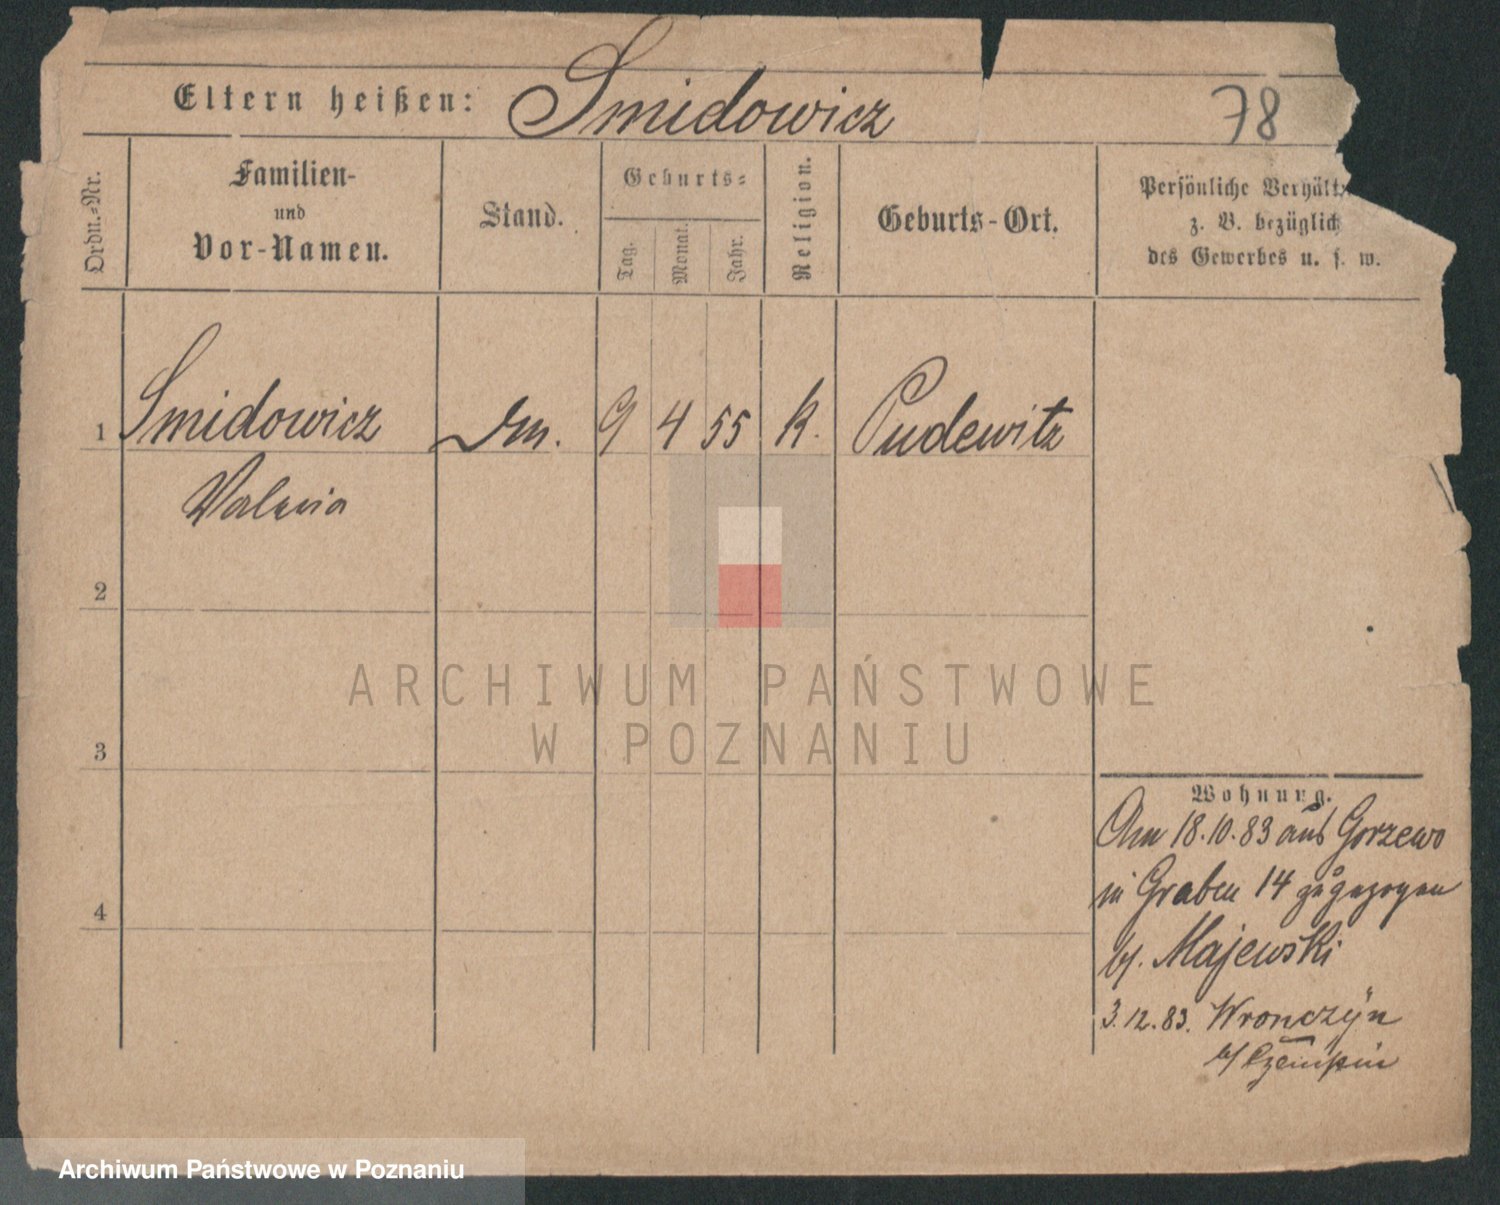 Eltern heißen: Smidowicz 78
Ordn.-Nr.
Familien-
und
Vor-Namen.
Stand.
Geburts-
Tag.
Monat.
Jahr.
Religion.
Geburts-Ort.
Persönliche Verhält
z. B. bezüglich
des Gewerbes u. s. w.
1 Smidowicz 9 4 55 k. Pudewitz
Valeria
2
3
4
Wohnung.
Am 18.10.83 aus Gorzewo
in Graben 14 zugezogen
b/. Majewski
3.12.83. Wronczÿn
b/ Czempin
ARCHIWUM PAŃSTWOWE
W POZNANIU
Archiwum Państwowe w Poznaniu